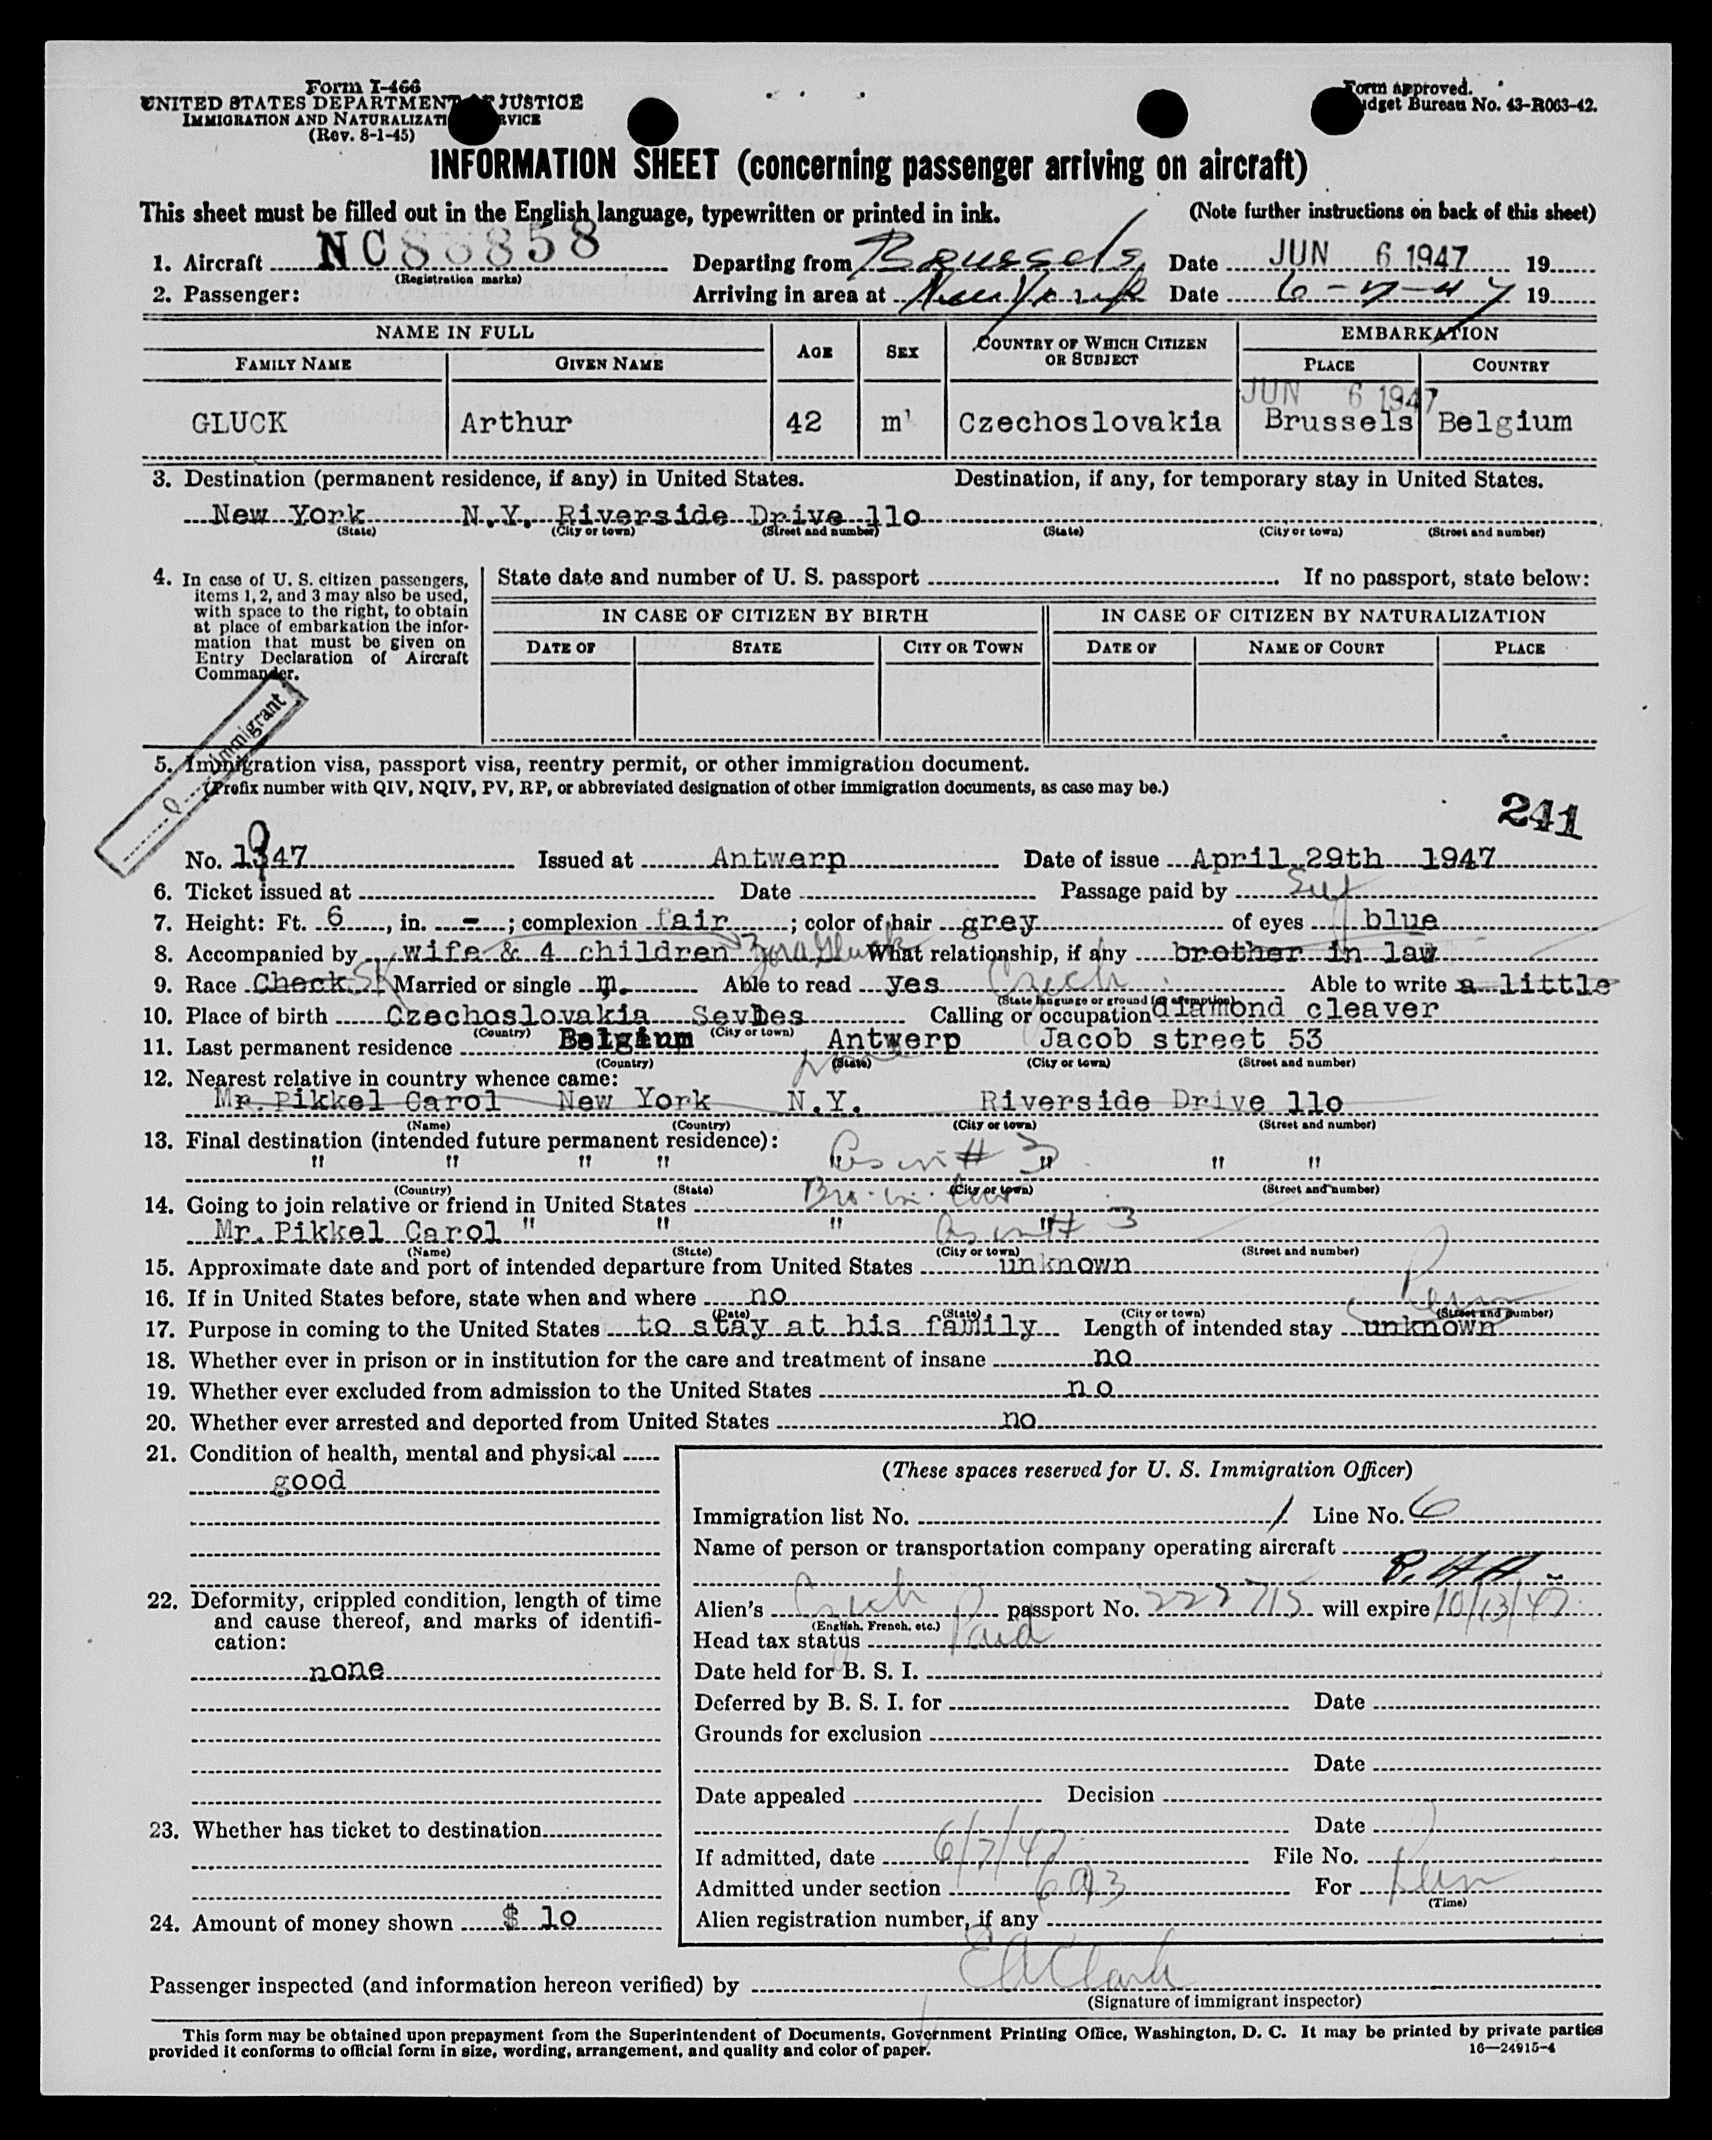 Form I-466
UNITED STATES DEPARTMENT OF JUSTICE
IMMIGRATION AND NATURALIZATION SERVICE
(Rev. 8-1-45)
Form approved.
Budget Bureau No. 43-R063-42.
INFORMATION SHEET (concerning passenger arriving on aircraft)
This sheet must be filled out in the English language, typewritten or printed in ink. (Note further instructions on back of this sheet)
1. Aircraft NC88858 Departing from Brussels Date JUN 6 1947 19
(Registration marks)
2. Passenger: Arriving in area at New York Date 6-7-47 19
NAME IN FULL AGE SEX COUNTRY OF WHICH CITIZEN OR SUBJECT EMBARKATION
FAMILY NAME GIVEN NAME PLACE COUNTRY
JUN 6 1947
GLUCK Arthur 42 m Czechoslovakia Brussels Belgium
3. Destination (permanent residence, if any) in United States. Destination, if any, for temporary stay in United States.
New York N.Y. Riverside Drive 11o
(State) (City or town) (Street and number) (State) (City or town) (Street and number)
4. In case of U. S. citizen passengers, items 1, 2, and 3 may also be used, with space to the right, to obtain at place of embarkation the information that must be given on Entry Declaration of Aircraft Commander.
State date and number of U. S. passport If no passport, state below:
IN CASE OF CITIZEN BY BIRTH IN CASE OF CITIZEN BY NATURALIZATION
DATE OF STATE CITY OR TOWN DATE OF NAME OF COURT PLACE
Q Immigrant
5. Immigration visa, passport visa, reentry permit, or other immigration document.
(Prefix number with QIV, NQIV, PV, RP, or abbreviated designation of other immigration documents, as case may be.)
241
No. 1947 Issued at Antwerp Date of issue April 29th 1947
6. Ticket issued at Date Passage paid by Self
7. Height: Ft. 6, in. -; complexion fair; color of hair grey of eyes blue
8. Accompanied by wife & 4 children What relationship, if any brother in law
9. Race Check Married or single m. Able to read yes Czech Able to write a little
(State language or ground for exemption)
10. Place of birth Czechoslovakia Sevbes Calling or occupation diamond cleaver
(Country) (City or town)
11. Last permanent residence Belgium Antwerp Jacob street 53
(Country) (State) (City or town) (Street and number)
12. Nearest relative in country whence came: none
Mr. Pikkel Carol New York N.Y. Riverside Drive 11o
(Name) (Country) (City or town) (Street and number)
13. Final destination (intended future permanent residence):
" " " " " As in # 3 " " "
(Country) (State) (City or town) (Street and number)
14. Going to join relative or friend in United States Bro-in-law
Mr. Pikkel Carol " " " As in # 3 "
(Name) (State) (City or town) (Street and number)
15. Approximate date and port of intended departure from United States unknown
16. If in United States before, state when and where no
(Date) (State) (City or town) (Street and number)
17. Purpose in coming to the United States to stay at his family Length of intended stay unknown Perm
18. Whether ever in prison or in institution for the care and treatment of insane no
19. Whether ever excluded from admission to the United States no
20. Whether ever arrested and deported from United States no
21. Condition of health, mental and physical
good
22. Deformity, crippled condition, length of time and cause thereof, and marks of identification:
none
23. Whether has ticket to destination
24. Amount of money shown $ 1o
(These spaces reserved for U. S. Immigration Officer)
Immigration list No. 1 Line No. 6
Name of person or transportation company operating aircraft
P.A.A.
Alien's Czech passport No. 222715 will expire 10/13/47
(English, French, etc.)
Head tax status Paid
Date held for B. S. I.
Deferred by B. S. I. for Date
Grounds for exclusion
Date
Date appealed Decision
Date
If admitted, date 6/7/47 File No.
Admitted under section 6a3 For Perm
(Time)
Alien registration number, if any
Passenger inspected (and information hereon verified) by EA Clark
(Signature of immigrant inspector)
This form may be obtained upon prepayment from the Superintendent of Documents, Government Printing Office, Washington, D. C. It may be printed by private parties
provided it conforms to official form in size, wording, arrangement, and quality and color of paper.
16—24915-4